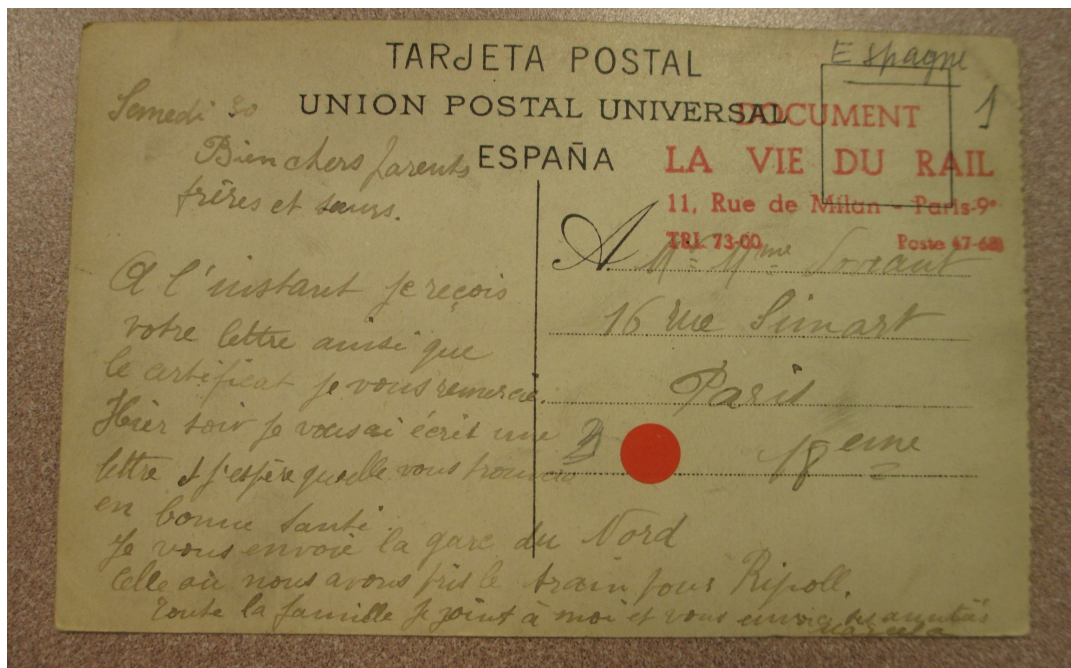 TARJETA POSTAL
Espagne
1
UNION POSTAL UNIVERSAL
ESPAÑA
DOCUMENT
LA VIE DU RAIL
11, Rue de Milan - Paris-9e
TRI. 73-00 Poste 47-
Samedi 30
Bien chers parents
frères et sœurs.
A l'instant je reçois
votre lettre ainsi que
le certificat je vous remercie.
Hier soir je vous ai écrit une
lettre et j'espère quelle vous trouvera
en bonne santé.
Je vous envoie la gare du Nord
Celle où nous avons pris le train pour Ripoll.
Toute la famille se joint à moi et vous envoie amitiés
A Mr Mme
16 rue Simart
Paris
18eme